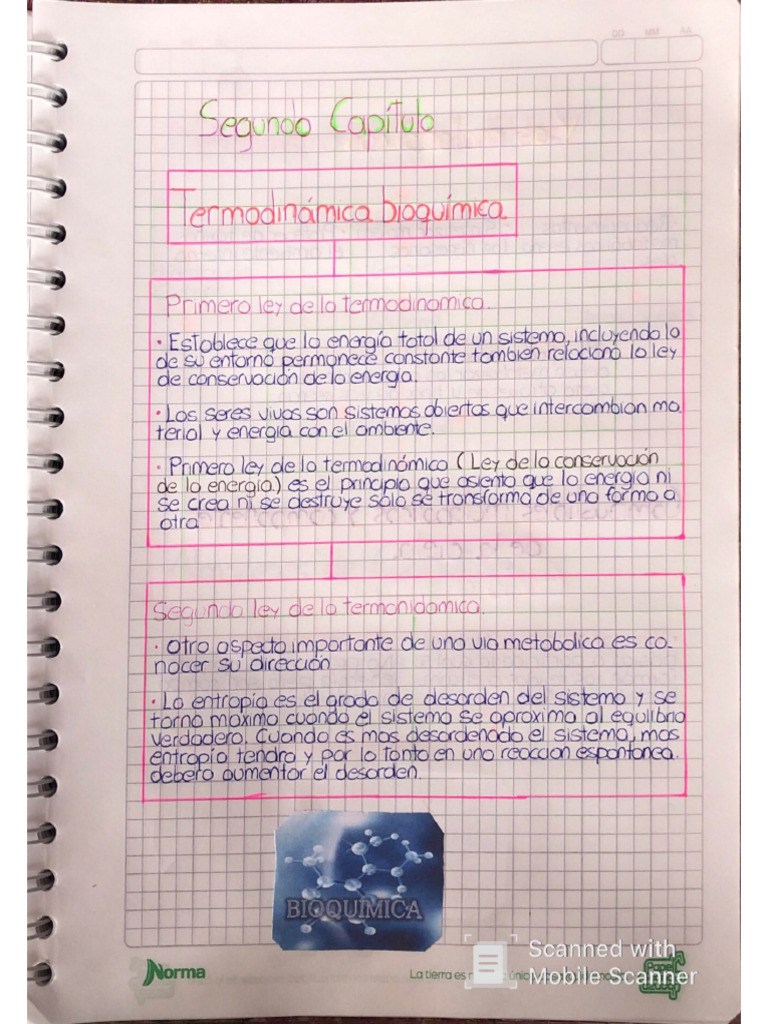 DD MM AA
Segundo Capítulo
Termodinámica bioquímica
Primera ley de la termodinamica.
· Establece que la energía total de un sistema, incluyendo la
de su entorno permanece constante tambien relaciona la ley
de conservación de la energía.
· Los seres vivos son sistemas abiertos que intercambian ma
terial y energía con el ambiente.
· Primera ley de la termodinámica (Ley de la conservación
de la energía) es el principio que asienta que la energía ni
se crea ni se destruye sólo se transforma de una forma a
otra
Segunda ley de la termonidamica.
· Otro aspecto importante de una via metabolica es co-
nocer su dirección
· La entropía es el grado de desorden del sistema y se
torna maxima cuando el sistema se aproxima al equlibrio
verdadero. Cuando es mas desordenado el sistema, mas
entropia tendra y por lo tanto en una reaccion espontanea.
debera aumentar el desorden.
BIOQUIMICA
Norma
La tierra es
Scanned with
Mobile Scanner